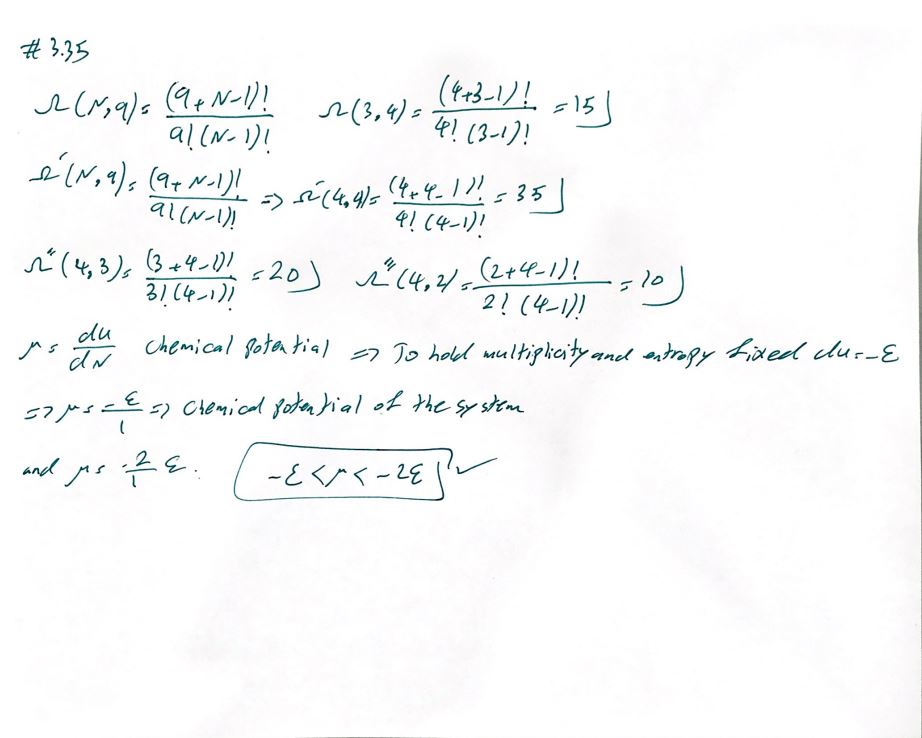 # 3.35
Ω(N,q) = (q+N-1)! / q!(N-1)!   Ω(3,4) = (4+3-1)! / 4! (3-1)! = 15
Ω'(N,q) = (q+N-1)! / q!(N-1)! => Ω'(4,4) = (4+4-1)! / 4! (4-1)! = 35
Ω"(4,3) = (3+4-1)! / 3!(4-1)! = 20   Ω"'(4,2) = (2+4-1)! / 2! (4-1)! = 10
μ = du/dN chemical potential => To hold multiplicity and entropy fixed du = -ε
=> μ = -ε/1 => chemical potential of the system
and μ = -2/1 ε. -ε < μ < -2ε ✓